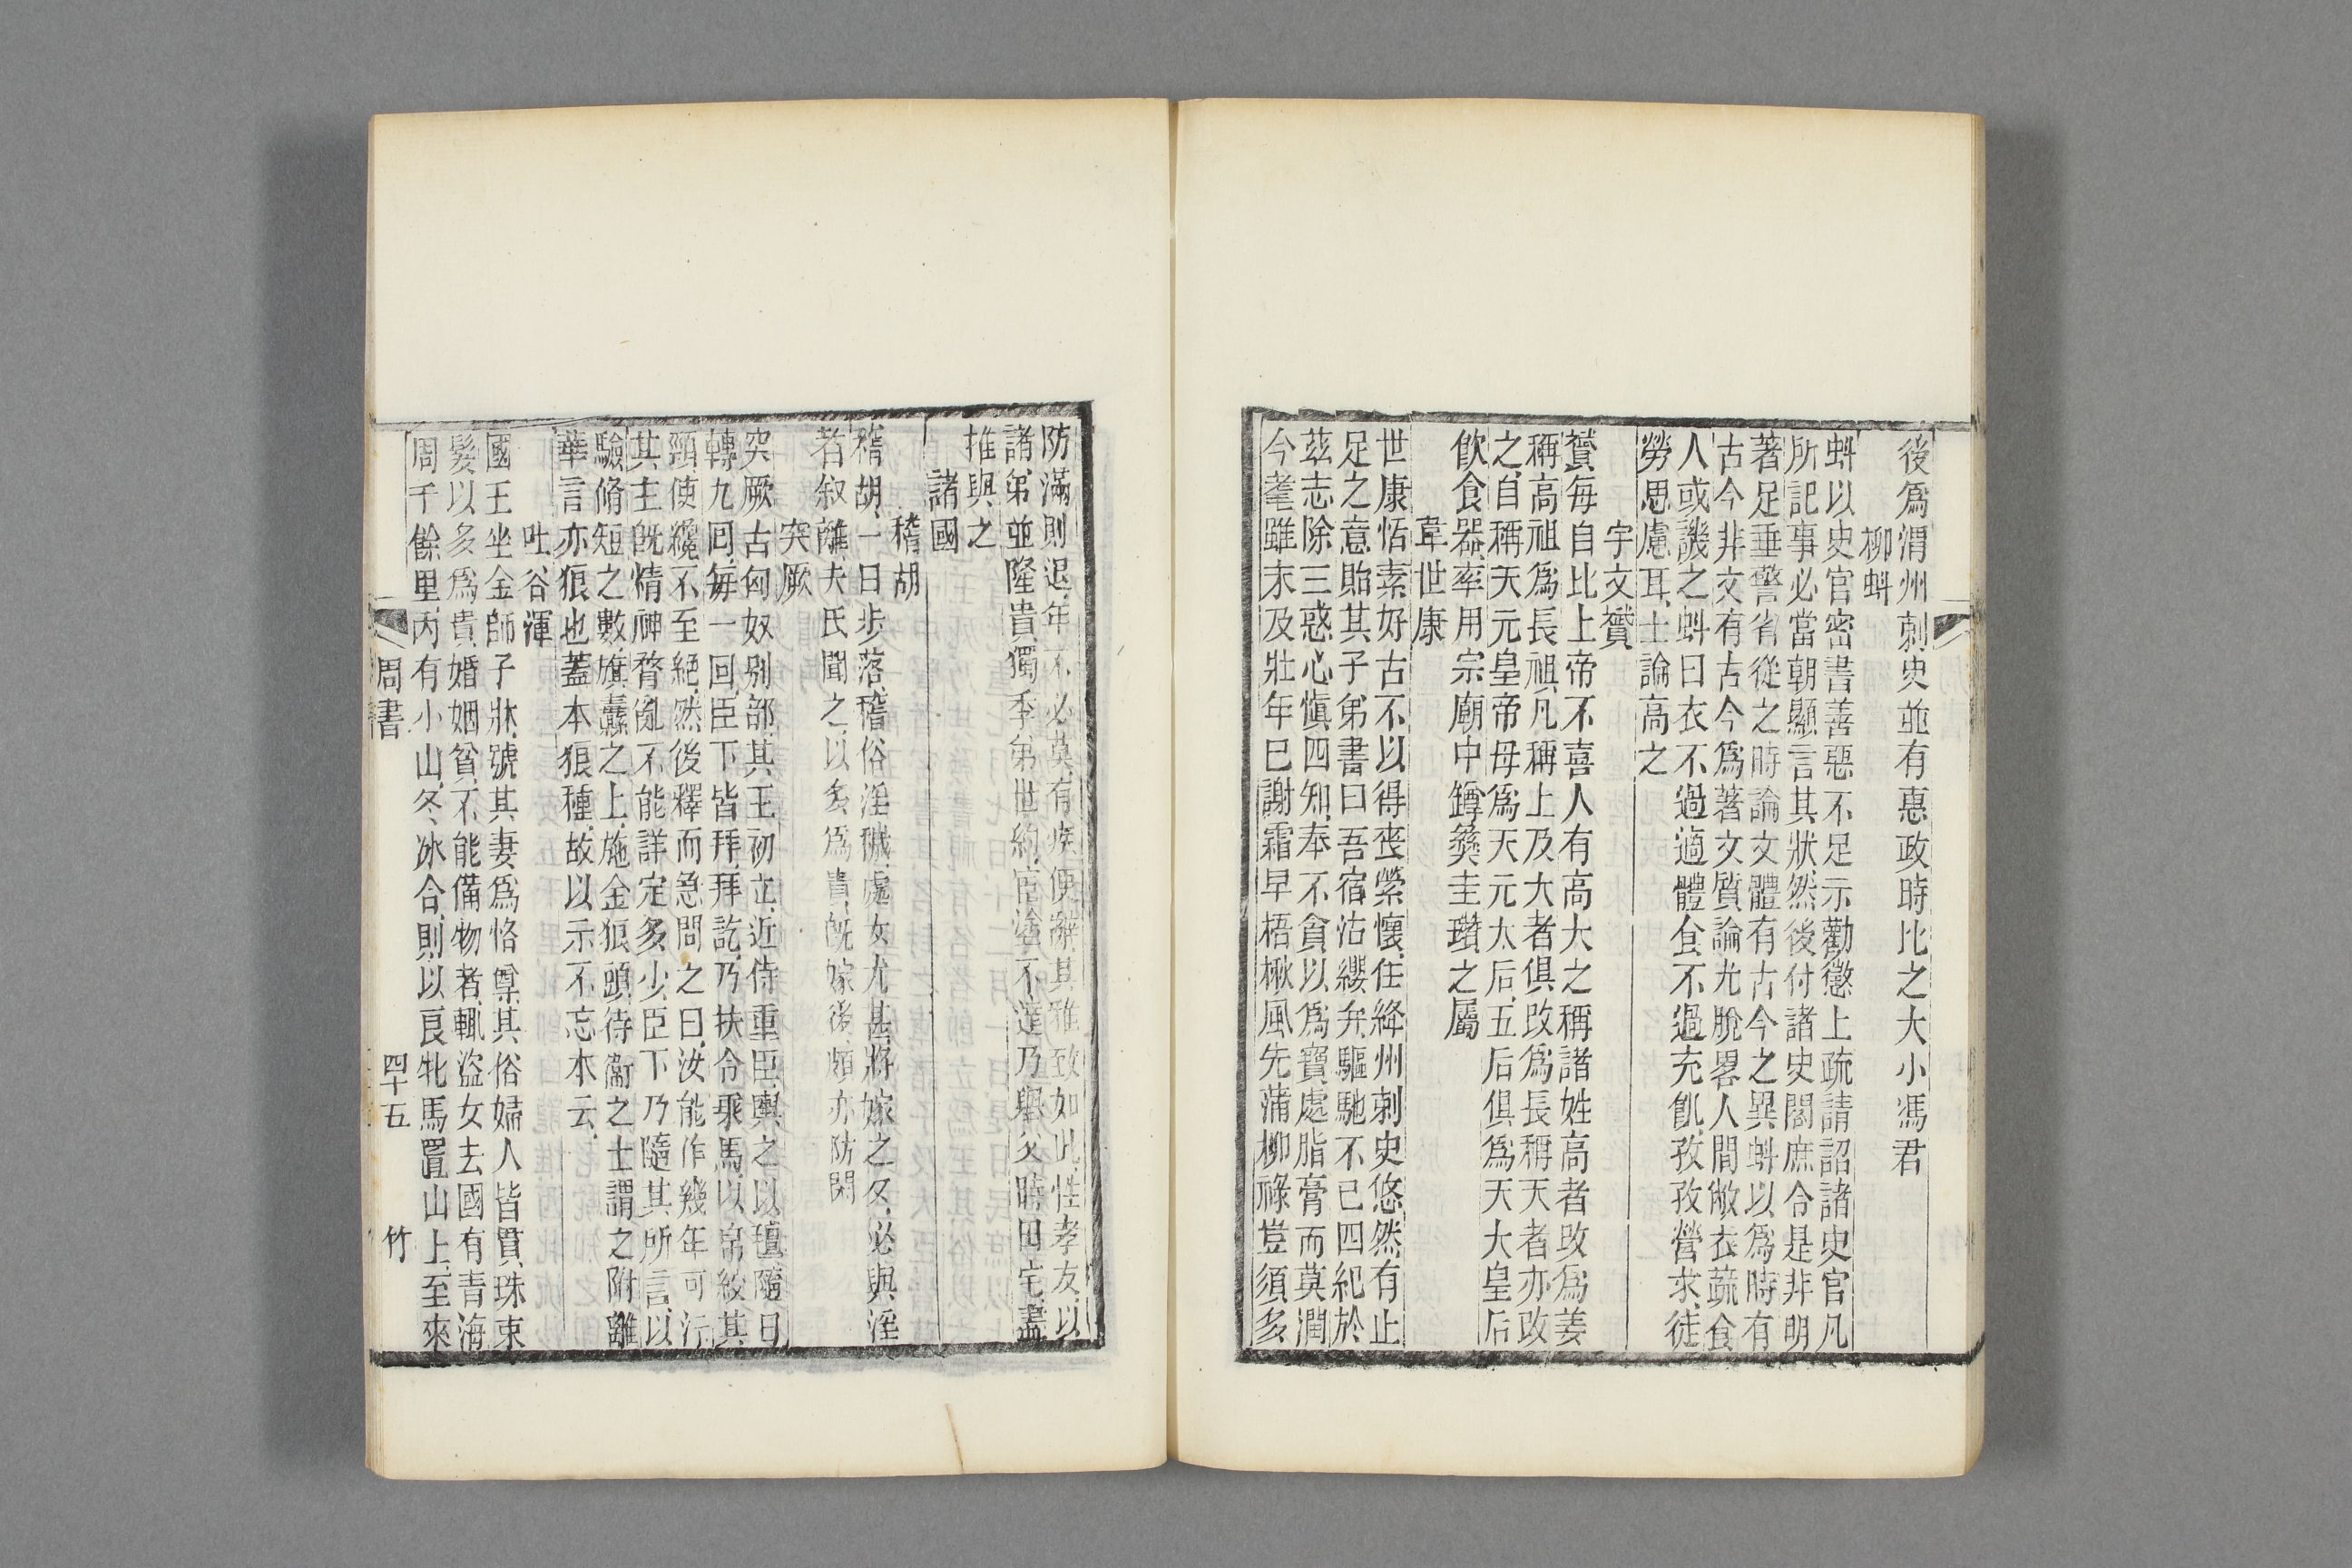 後爲渭州刺史並有惠政時比之大小馮君
柳蚪
蚪以史官密書善惡不足示勸懲上疏請詔諸史官凡
所記事必當朝顯言其狀然後付諸史閣庶令是非明
著足垂警省從之時論文體有古今之異蚪以爲時有
古今非文有古今爲著文質論尤脫畧人間敝衣蔬食
人或譏之蚪曰衣不過適體食不過充飢孜孜營求徒
勞思慮耳士論高之
宇文贇
贇每自比上帝不喜人有高大之稱諸姓高者改爲姜
稱高祖爲長祖凡稱上及大者俱改爲長稱天者亦改
之自稱天元皇帝母爲天元太后五后俱爲天大皇后
飲食器率用宗廟中罇彝圭瓚之屬
韋世康
世康恬素好古不以得喪縈懷任絳州刺史悠然有止
足之意貽其子弟書曰吾宿沾纓弁驅馳不已四紀於
茲志除三惑心愼四知奉不貪以爲寶處脂膏而莫潤
今耄雖未及壯年已謝霜早梧楸風先蒲柳祿豈須多
防滿則退年不必莫有疾便辭其雅致如此性孝友以
諸弟並隆貴獨季弟世約宦塗不達乃舉父時田宅盡
推與之
諸國
稽胡
稽胡一曰步落稽俗淫穢處女尤甚將嫁之夕必與淫
者叙離夫氏聞之以多爲貴旣嫁後頗亦防閑
突厥
突厥古匈奴别部其王初立近侍重臣輿之以氊隨日
轉九回每一回臣下皆拜拜訖乃扶令乘馬以帛絞其
頸使纔不至絕然後釋而急問之曰汝能作幾年可汗
其主旣情神瞀亂不能詳定多少臣下乃隨其所言以
驗脩短之數旗纛之上施金狼頭侍衞之士謂之附離
華言亦狼也蓋本狼種故以示不忘本云
吐谷渾
國王坐金師子牀號其妻爲恪尊其俗婦人皆貫珠束
髮以多爲貴婚姻貧不能備物者輒盜女去國有青海
周千餘里内有小山冬冰合則以良牝馬置山上至來
周書
四十五
竹